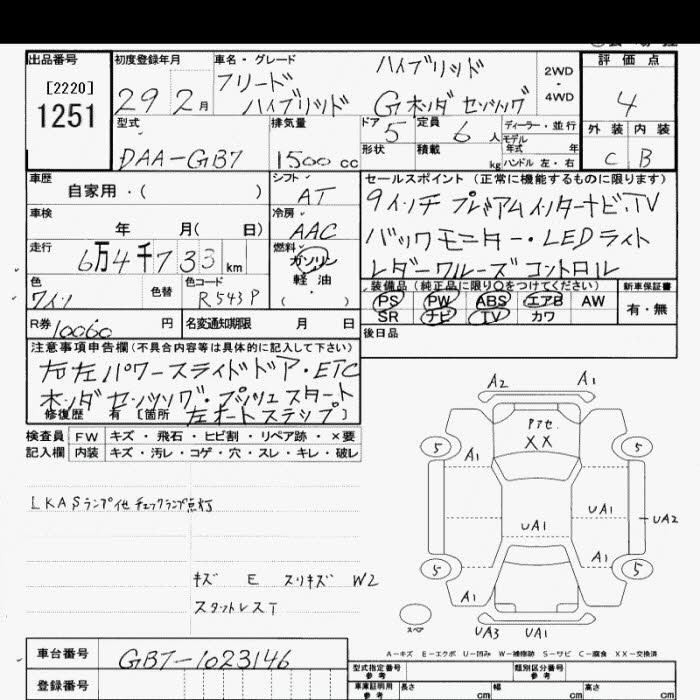 出品番号
[2220]
1251
初度登録年月
29 2月
車名・グレード
フリード ハイブリッド
ハイブリッド G ホンダ センシング
2WD
・
4WD
評価点
4
外装 内装
C B
型式
DAA-GB7
排気量
1500 cc
ドア 5
定員 6人
形状
積載 kg
ディーラー・並行
モデル
年式 年
ハンドル 左・右
車歴
自家用・( )
シフト
AT
車検
年 月( 日)
冷房
AAC
走行
6万4千733km
燃料
ガソリン
軽油
・( )
色
ワイン
色替
色コード
R543P
R券 10060 円
名変通知期限 月 日
セールスポイント (正常に機能するものに限ります)
9インチ プレミアムインターナビ.TV
バックモニター・LEDライト
レダークルーズコントロール
装備品 (純正品に限り○をつけてください)
PS PW ABS エアB AW
SR ナビ TV カワ
新車保証書
有・無
後日品
注意事項申告欄 (不具合内容等は具体的に記入して下さい)
右左パワースライドドア・ETC
ホンダセンシング・プッシュスタート
修復歴 有 [箇所 左オートステップ]
検査員 FW キズ・飛石・ヒビ割・リペア跡・×要
記入欄 内装 キズ・汚レ・コゲ・穴・スレ・キレ・破レ
LKASランプ他チェックランプ点灯
キズ E スリキズ W2
スタットレスT
A2 A1
Fアセ.
XX
5 A1 5
UA1
UA1
UA2
5 A1 5
A1
スペア
UA3 UA1
A-キズ E-エクボ U-凹み W-補修跡 S-サビ C-腐食 XX-交換済
車台番号
GB7-1023146
登録番号
型式指定番号
参考
類別区分番号
参考
車庫証明用
参考
長さ cm
幅 cm
高さ cm